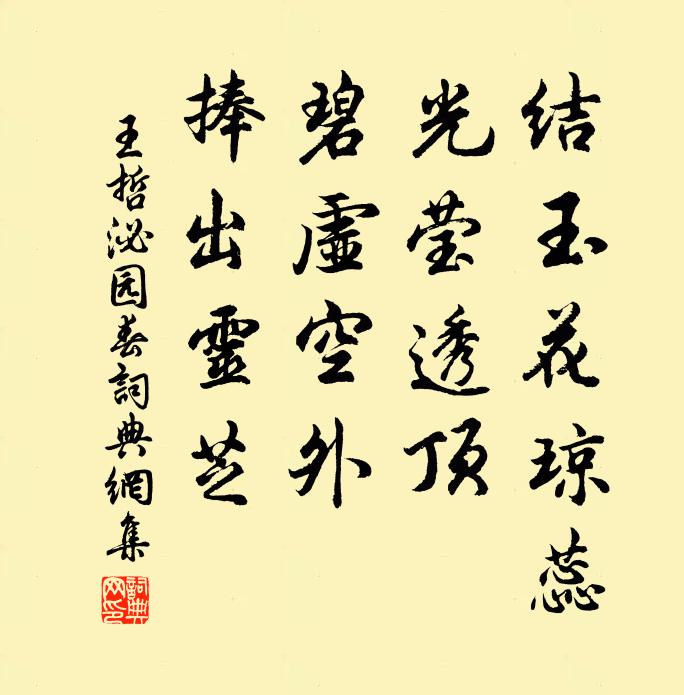 结玉花琼蕊
光莹透顶
碧虚空外
捧出靈芝
王哲泌园春詞典網集
詞典网印